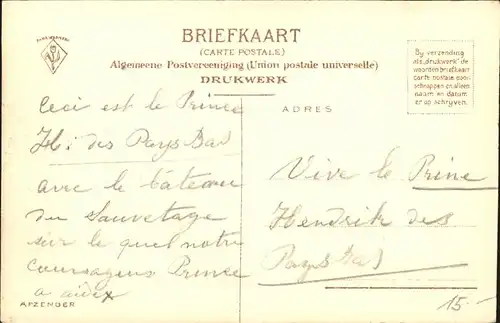 BRIEFKAART
(CARTE POSTALE)
Algemeene Postvereeniging (Union postale universelle)
DRUKWERK
By verzending
als „drukwerk” de
woorden briefkaart
carte postale door-
schrappen en alleen
naam en datum
er op schrijven.
ADRES
Ceci est le Prince
H. des Pays Bas
avec le bâteau
du Sauvetage
sur le quel notre
courageux Prince
a aidé
AFZENDER
Vive le Prine
Hendrik des
Pays bas
15.-